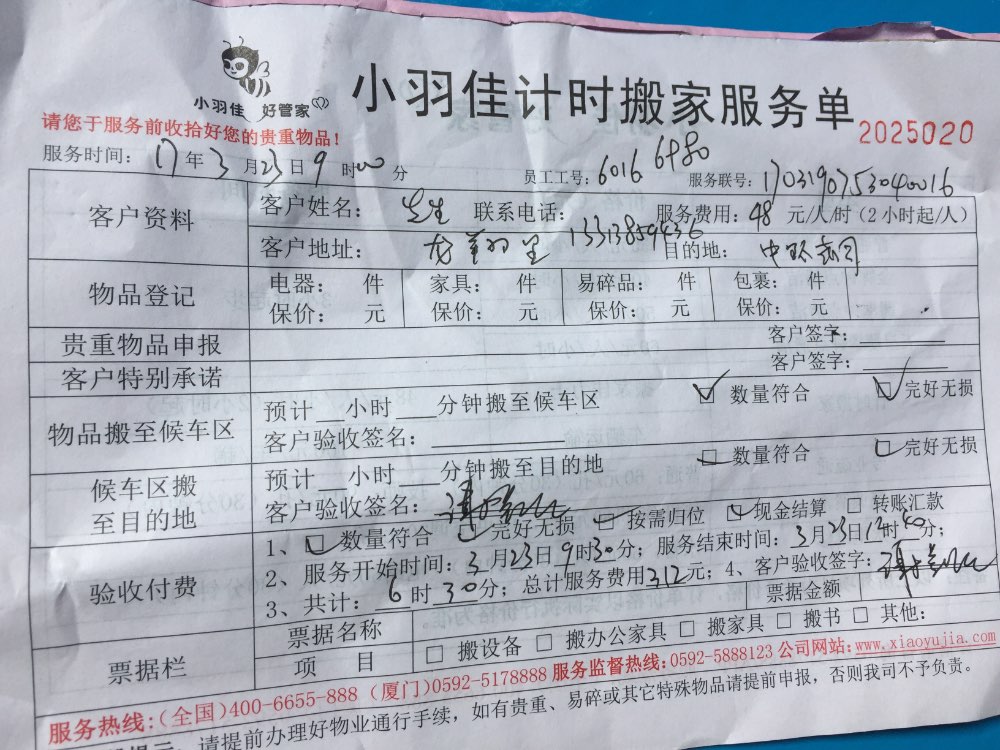 小羽佳 好管家
小羽佳计时搬家服务单
2025020
请您于服务前收拾好您的贵重物品！
服务时间： 17 年 3 月 23 日 9 时 00 分 员工工号： 6016 服务联号： 1703190753040016
客户资料
客户姓名： 先生 联系电话： 13313859436 服务费用： 48 元/人/时（2小时起/人）
客户地址： 目的地： 中环
物品登记
电器： 件 家具： 件 易碎品： 件 包裹： 件
保价： 元 保价： 元 保价： 元 保价： 元
贵重物品申报 客户签字：
客户特别承诺 客户签字：
物品搬至候车区
预计 小时 分钟搬至候车区 数量符合 完好无损
客户验收签名：
候车区搬至目的地
预计 小时 分钟搬至目的地 数量符合 完好无损
客户验收签名：
验收付费
1、 数量符合 完好无损 按需归位 现金结算 转账汇款
2、服务开始时间： 3 月 23 日 9 时 30 分； 服务结束时间： 3 月 23 日 时 分；
3、共计： 6 时 30 分； 总计服务费用 312 元； 4、客户验收签字：
票据栏
票据名称 票据金额
项 目 搬设备 搬办公家具 搬家具 搬书 其他：
服务热线：（全国）400-6655-888（厦门）0592-5178888 服务监督热线：0592-5888123 公司网站：www.xiaoyujia.com
请提前办理好物业通行手续，如有贵重、易碎或其它特殊物品请提前申报，否则我司不予负责。